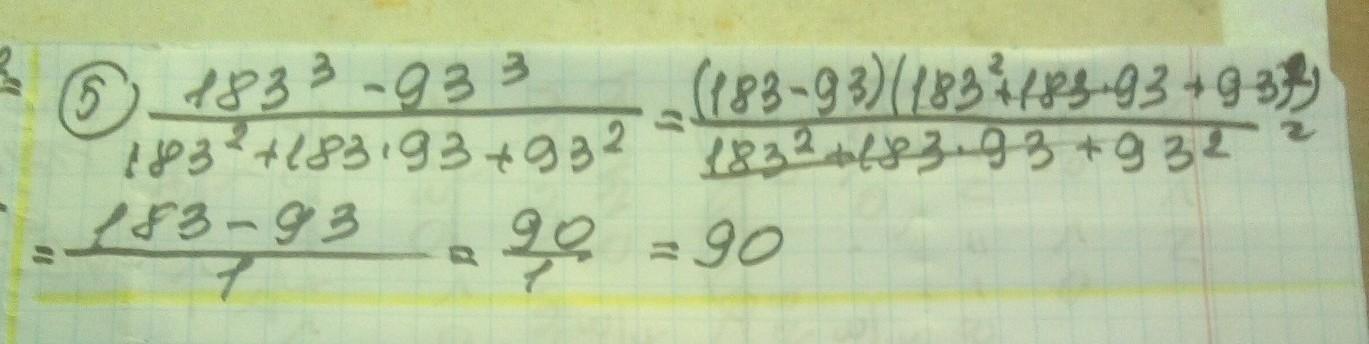 ⑤ (183³ - 93³)/(183² + 183 · 93 + 93²) = ((183 - 93)(183² + 183 · 93 + 93²))/(183² + 183 · 93 + 93²) =
= (183 - 93)/1 = 90/1 = 90